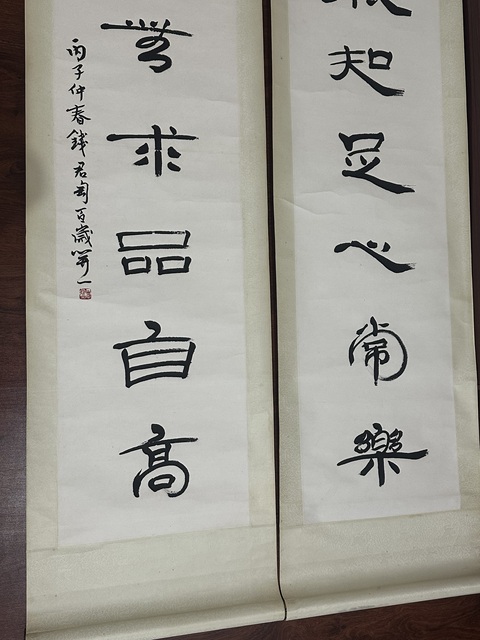 知足心常樂
無求品自高
丙子仲春錢君匋百歲開一